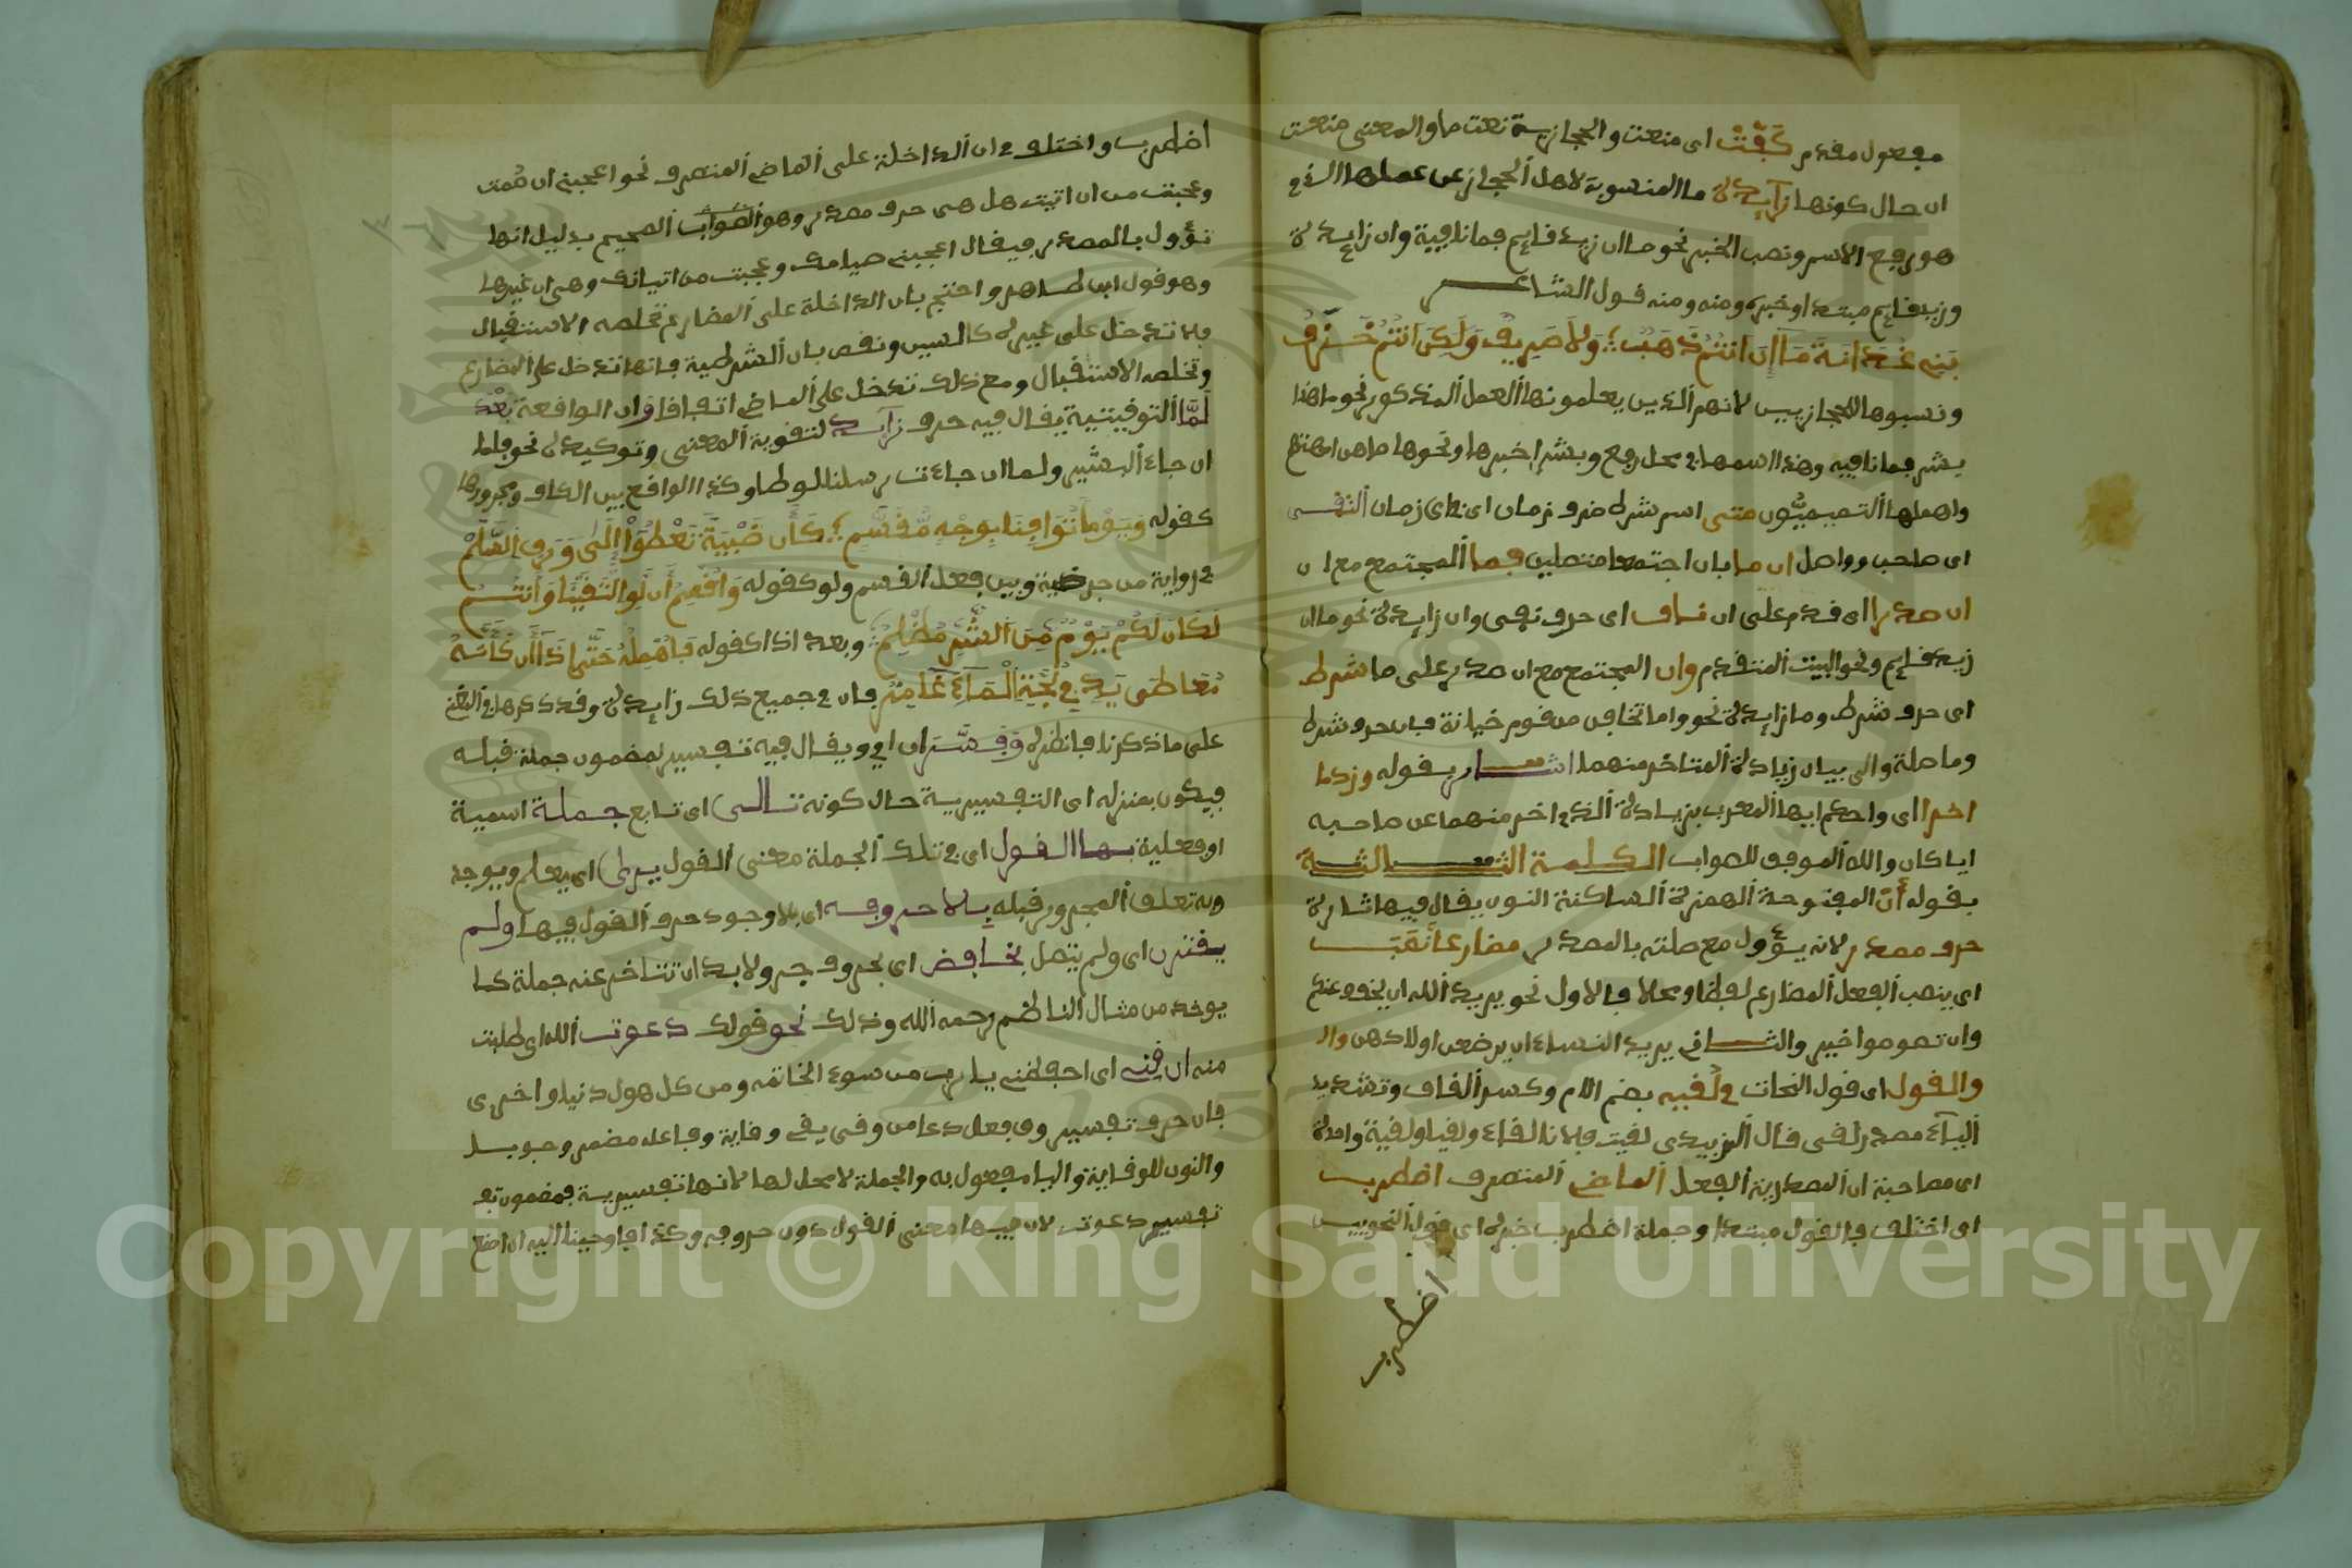 مفعول مقدم كَفَّتْ اى منعت والحجازية نعت ما والمعنى منعت
ان حال كونها زايدة ما المنسوبة لاهل الحجاز عن عملها الذي
هو رفع الاسم ونصب الخبر نحو ما ان زيد قايم فما نافية وان زايدة
وزيد قايم مبتدا وخبر ومنه ومنه قول الشاعر
بَنِي غُدَانَةَ مَا إِن انتُمْ ذَهَبٌ ؛ وَلَا صَرِيفٌ وَلَكِن انتُمْ خَزَفُ
ونسبوها للحجازيين لانهم الذين يعلمونها العمل المذكور نحو ما هذا
بشر فما نافيه وهذا اسمها في محل رفع وبشرا خبرها ونحوها ما هن امهتهم
واهملها التميميُّون متى اسم شرط ظرف زمان اى في اى زمان التقى
اى صاحب وواصل ان ما بان اجتمعا متصلين فما المجتمع مع ان
ان صدرا اى قدم على ان ناف اى حرف نفى وان زايدة نحو ما ان
زيد قايم ونحو البيت المتقدم وان المجتمع مع ان صدر على ما شرط
اى حرف شرط وما زايدة نحو واما تخافن من قوم خيانة فان حرف شرط
وما صلة والى بيان زيادة المتاخر منهما اشار بقوله وزدما
اخرا اى واحكم ايها المعرب بزيادة الذي اخر منهما عن صاحبه
ايا كان والله الموفق للصواب الكلمة الثالثة
بقوله أَنْ المفتوحة الهمزة الساكنة النون يقال فيها تارة
حرف مصدر لانه يؤول مع صلته بالمصدر مضارعا نَصَبَ
اى ينصب الفعل المضارع لفظا ومحلا فالاول نحو يريد الله ان يخفف عنكم
وان تصوموا خير والثاني يريد النساء ان يرضعن اولادهن وال
والقول اى قول النحات في لُقيه بضم اللام وكسر القاف وتشديد
اليآء مصدر لقى قال الزبيدي لقيت فلانا لقاء ولقيا ولقية واحدة
اى مصاحبة ان المصدرية الفعل الماضي المتصرف اضطرب
اى اختلف فالقول مبتدا وجملة اضطرب خبره اى قول النحويين
اضطرب
اضطرب واختلف في ان الداخلة على الماضي المتصرف نحو اعجبني ان صُمت
وعجبت من ان اتيت هل هى حرف مصدر وهو الصواب الصحيح بدليل انها
تؤول بالمصدر فيقال اعجبني صيامك وعجبت من اتيانك وهى ان غيرها
وهو قول ابن طاهر واحتج بان الداخلة على المضارع تخلصه الاستقبال
فلا تدخل على غيره كالسين ونقض بان الشرطية فانها تدخل على المضارع
وتخلصه الاستقبال ومع ذلك تدخل على الماضي اتفاقا وان الواقعة بَعْدَ
لَمَّا التوقيتية يقال فيه حرف زايد لتقوية المعنى وتوكيده نحو فلما
ان جاء البشير ولما ان جاءت رسلنا لوطا وكذا الواقع بين الكاف ومجرورها
كقوله وَيَوْماً تُوَافِينَا بِوَجْهِ مُّقَسَّمِ ؛ كَأَن ظَبْيَةَ تَعْطُوا إِلَى وَرِقِ السَّلَمْ
في رواية من جر ظبية وبين فعل القسم ولو كقوله وَاقْسِمُ أَن لَّوِ الْتَقَيْنَا وَأَنتُمُ
لَكَانَ لَكُمْ يَوْمٌ مِّنَ الشَّرِّ مُظْلِمُ ؛ وبعد اذا كقوله فَأُمْهِلُهُ حَتَّى إِذَا أَن كَأَنَّهُ
مُعَاطِى يَدٍ فِي لُجَّةِ الْمَآءِ غَامِرُ فان في جميع ذلك زايدة وقد ذكرها في المغني
على ما ذكرنا فانظره وَفَسَّرَ ان اي ويقال فيه تفسير لمضمون جملة قبله
فيكون بمنزله اى التفسيرية حال كونه تالى اى تابع جملة اسمية
او فعلية بها القول اى في تلك الجملة معنى القول يرى اى يعلم ويوجد
وبه تعلق المجرور قبله بلا حروفه اى بلا وجود حرف القول فيها ولم
يقترن اى ولم يتصل بخافض اى بحروف جر ولا بد ان تتاخر عنه جملة كما
يوخذ من مثال الناظم رحمه الله وذلك نحو قولك دعوت الله اى طلبت
منه ان قِنِي اى احفظني يا رب من سوء الخاتمه ومن كل هول دنيا واخرى
فان حرف تفسير وق فعل دعا من وقى يقى وقاية وفاعله مضمر وجوبا
والنون للوقاية واليا مفعول به والجملة لا محل لها لانها تفسيرية فمضمون تف
تفسير دعوت لان فيها معنى القول دون حروفه وكذا فاوحينا اليه ان اصنع
Copyright © King Saud University